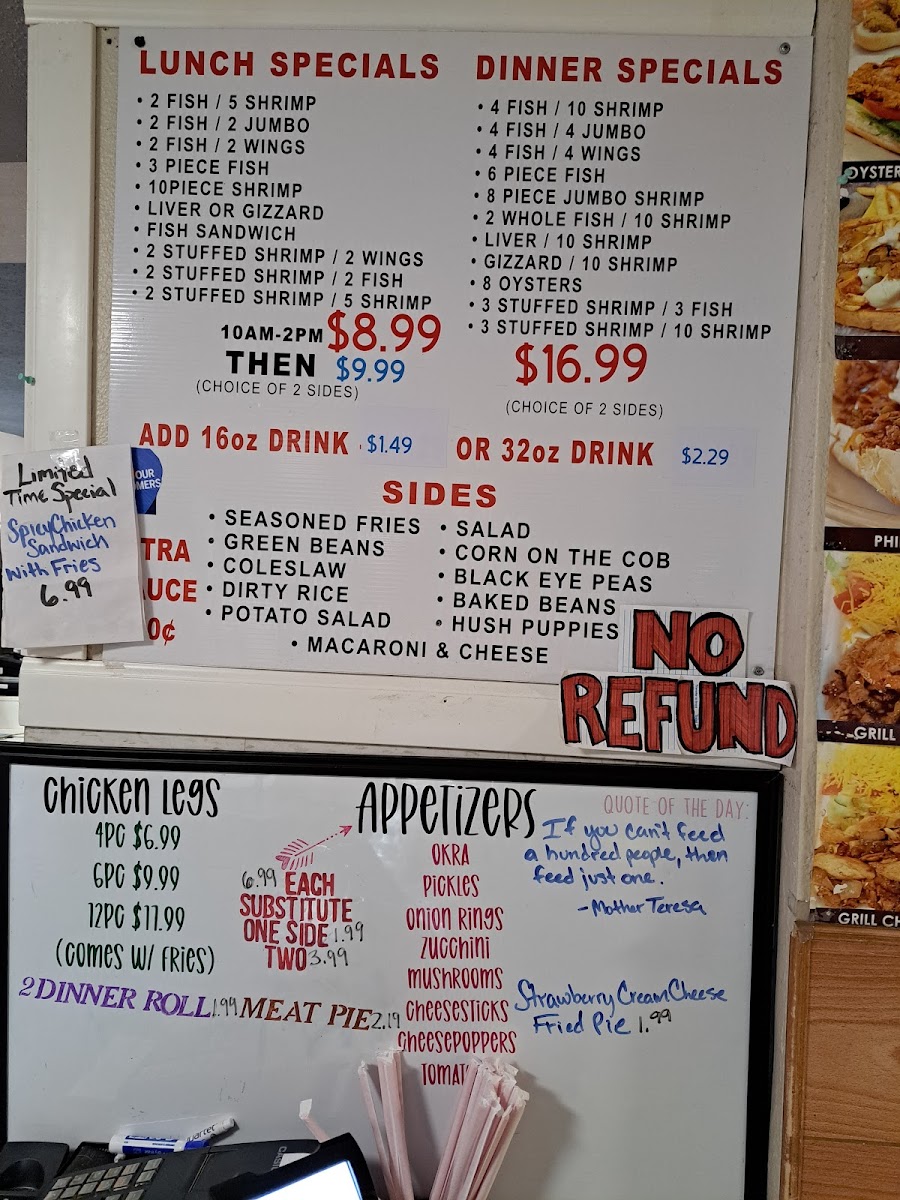 LUNCH SPECIALS
• 2 FISH / 5 SHRIMP
• 2 FISH / 2 JUMBO
• 2 FISH / 2 WINGS
• 3 PIECE FISH
• 10PIECE SHRIMP
• LIVER OR GIZZARD
• FISH SANDWICH
• 2 STUFFED SHRIMP / 2 WINGS
• 2 STUFFED SHRIMP / 2 FISH
• 2 STUFFED SHRIMP / 5 SHRIMP
10AM-2PM $8.99
THEN $9.99
(CHOICE OF 2 SIDES)
DINNER SPECIALS
• 4 FISH / 10 SHRIMP
• 4 FISH / 4 JUMBO
• 4 FISH / 4 WINGS
• 6 PIECE FISH
• 8 PIECE JUMBO SHRIMP
• 2 WHOLE FISH / 10 SHRIMP
• LIVER / 10 SHRIMP
• GIZZARD / 10 SHRIMP
• 8 OYSTERS
• 3 STUFFED SHRIMP / 3 FISH
• 3 STUFFED SHRIMP / 10 SHRIMP
$16.99
(CHOICE OF 2 SIDES)
ADD 16oz DRINK $1.49 OR 32oz DRINK $2.29
SIDES
• SEASONED FRIES
• GREEN BEANS
• COLESLAW
• DIRTY RICE
• POTATO SALAD
• SALAD
• CORN ON THE COB
• BLACK EYE PEAS
• BAKED BEANS
• HUSH PUPPIES
• MACARONI & CHEESE
OUR
MERS
TRA
UCE
0¢
Limited
Time Special
Spicy Chicken
Sandwich
with Fries
6.99
NO
REFUND
Chicken Legs
4PC $6.99
6PC $9.99
12PC $17.99
(Comes w/ Fries)
2 DINNER ROLL 1.99
MEAT PIE 2.19
APPETIZERS
6.99 EACH
SUBSTITUTE
ONE SIDE 1.99
TWO 3.99
OKRA
PICKLES
ONION RINGS
ZUCCHINI
MUSHROOMS
CHEESESTICKS
CHEESEPOPPERS
TOMAT
QUOTE OF THE DAY:
If you can't feed
a hundred people, then
feed just one.
-Mother Teresa
Strawberry Cream Cheese
Fried Pie 1.99
OYSTER
PHI
GRILL
GRILL CH